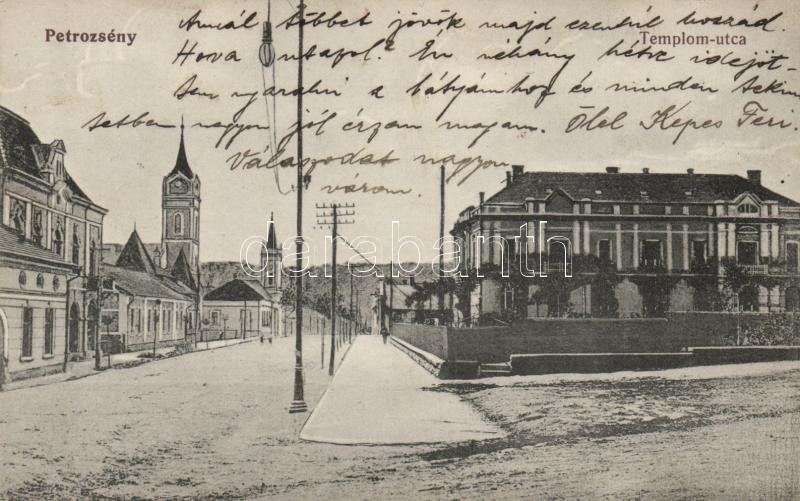 Petrozsény
Templom-utca
Annál többet jövök majd ezentúl hozzád.
Hova utazol? Én néhány hétre idejöt-
tem nyaralni a bátyámhoz és minden tekin
tetben nagyon jól érzem magam. Ölel Kepes Feri.
Válaszodat nagyon
várom.
darabanth